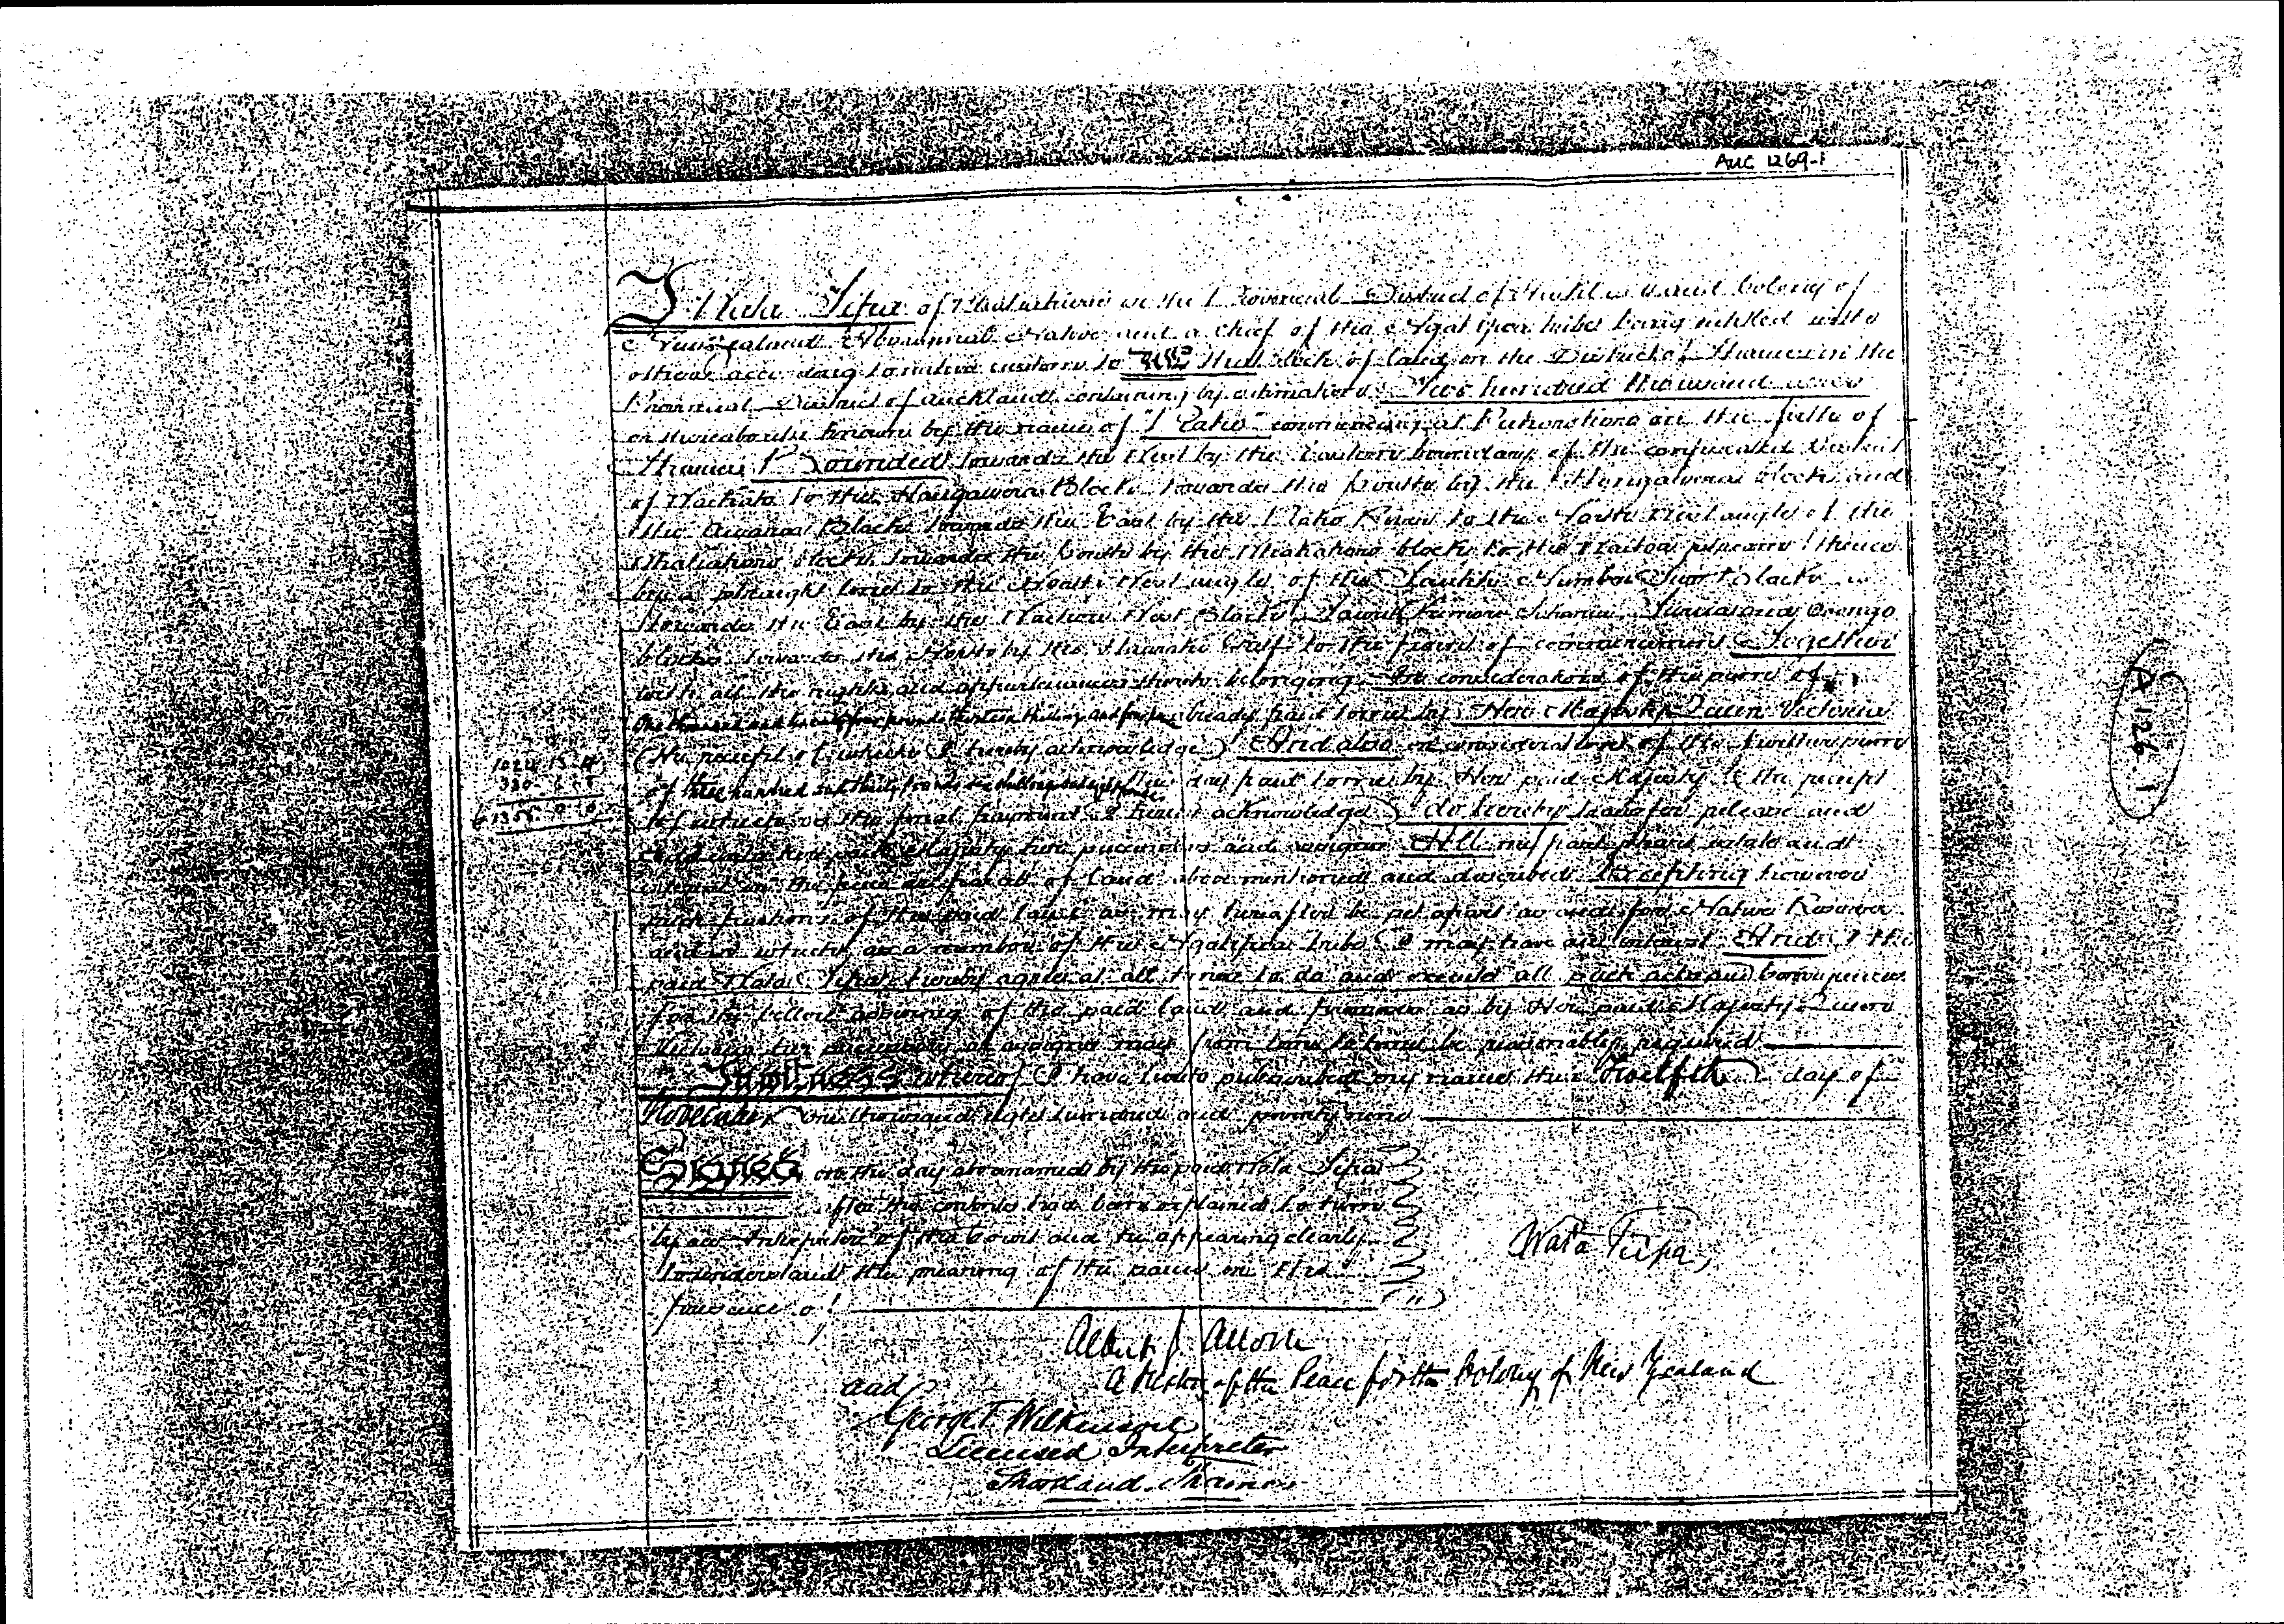 AUC 1269-1
I Wata Tipa of in the Provincial District of Colony of
New Zealand Aboriginal Native and a chief of the Ngatipaoa tribe being entitled with
others according to native custom to All that block of land in the District of Thames in the
Provincial District of Auckland containing by estimation Two hundred thousand acres
or thereabouts known by the name of "Piako" commencing at Pukorokoro on the Firth of
Thames Bounded towards the West by the Eastern boundary of the confiscated District
of Waikato to the Hangawera Block towards the South by the Hangawera Block and
the Block towards the East by the Piako River to the North West angle of the
block towards the South by the block to the Waitoa thence
by a straight line to the North West angle of the Number Two Block
towards the East by the West Block
blocks towards the North by the Hauraki Gulf to the point of commencement Together
with all the rights and appurtenances thereto belonging In consideration of the sum of
One thousand and twenty four pounds thirteen shillings and four pence already paid to me by Her Majesty Queen Victoria
(the receipt of which I hereby acknowledge) And also in consideration of the further sum
of three hundred and thirty pounds six shillings and eight pence this day paid to me by Her said Majesty (the receipt
of which as the final payment I hereby acknowledge) do hereby transfer release and
unto Her said Majesty her successors and assigns All my part share estate and
interest in the piece or parcel of land above mentioned and described Excepting however
such portions of the said land as may hereafter be set apart as and for Native Reserves
and in which as a member of the Ngatipaoa tribe I may have an interest And I the
said Wata Tipa hereby agree at all times to do and execute all such acts and conveyances
for the better assuring of the said land and premises as by Her said Majesty Queen
Victoria her successors or assigns may from time to time be reasonably required
In witness whereof I have hereto subscribed my name this Twelfth day of
November one thousand eight hundred and seventy nine
1024. 13. 4
330. 6. 8
£1355. 0. 0
Signed on the day abovenamed by the said Wata Tipa
after the contents had been explained to him
by an Interpreter of the Court and he appearing clearly
to understand the meaning of the same in the
presence of
Wata Tipa,
Albert J Allom
A Justice of the Peace for the Colony of New Zealand
and
George T Wilkinson
Licensed Interpreter
Shortland Thames
A 1261